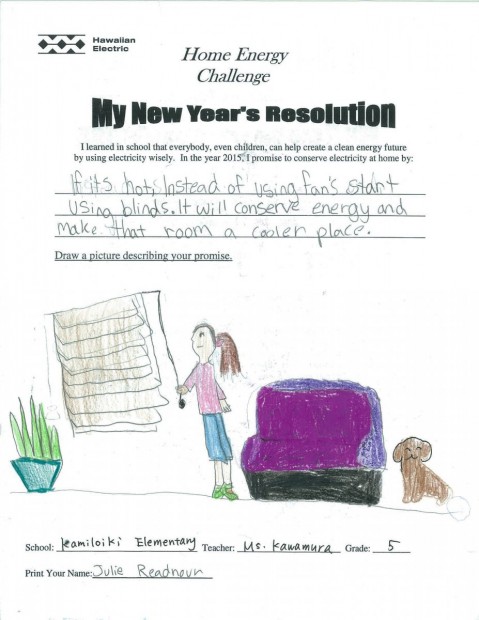 Hawaiian
Electric
Home Energy
Challenge
My New Year's Resolution
I learned in school that everybody, even children, can help create a clean energy future
by using electricity wisely. In the year 2015, I promise to conserve electricity at home by:
If its hot, Instead of using fan's start
using blinds. It will conserve energy and
make that room a cooler place.
Draw a picture describing your promise.
School: Kamiloiki Elementary Teacher: Ms. Kawamura Grade: 5
Print Your Name: Julie